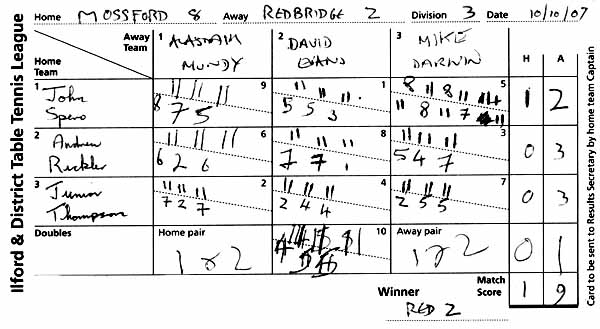 Ilford & District Table Tennis League
Home MOSSFORD 8 Away REDBRIDGE 2 Division 3 Date 10/10/07
Away Team 1 ALASTAIR MUNDY 2 DAVID EVANS 3 MIKE DARWIN H A
Home Team
1 John Spero 9 11 11 11 8 7 5 1 11 11 11 5 5 3 5 8 11 8 11 11 8 11 7 1 2
2 Andrew Rickler 6 11 11 11 6 2 6 8 11 11 11 7 7 1 3 11 11 11 5 4 7 0 3
3 Junior Thompson 2 11 11 11 7 2 7 4 11 11 11 2 4 4 7 11 11 11 2 5 5 0 3
Doubles Home pair 1 & 2 10 Away pair 1 & 2 0 1
Winner RED 2 Match Score 1 9
Card to be sent to Results Secretary by home team Captain